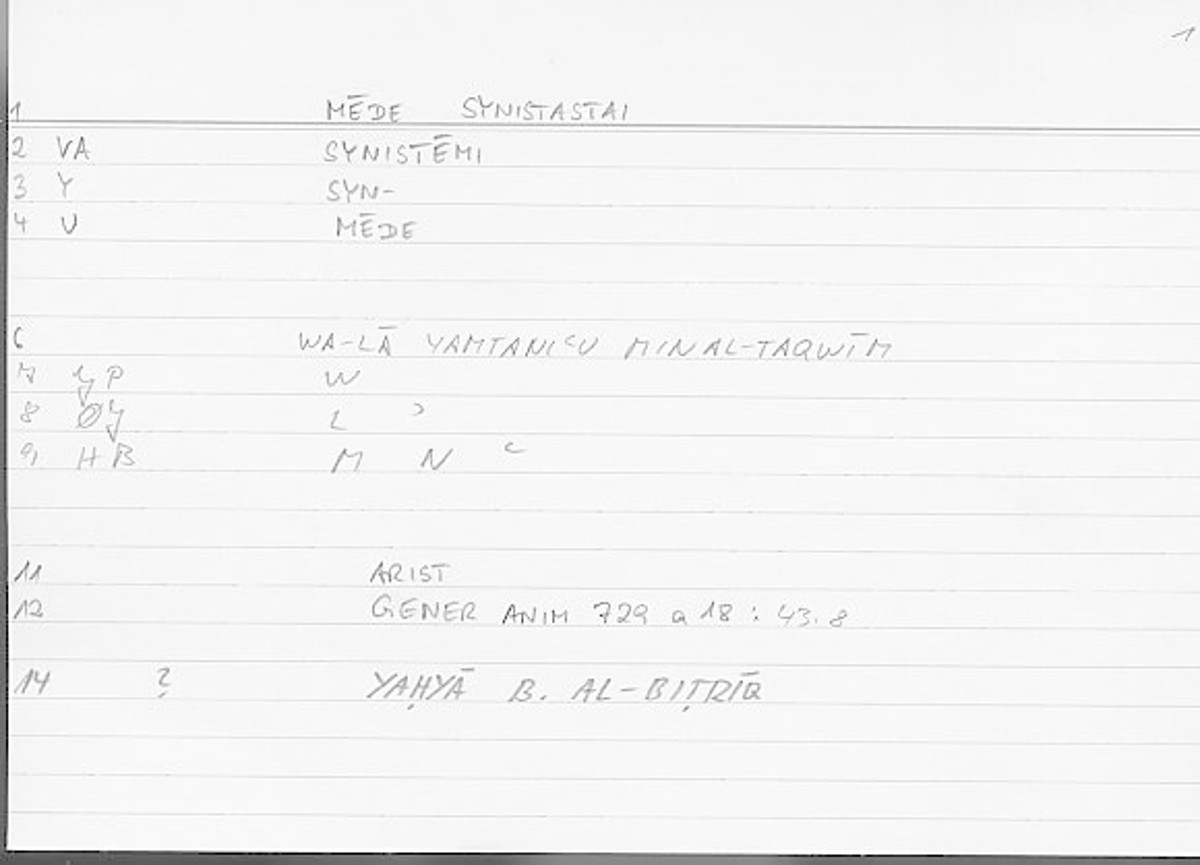 1
1 MĒDE SYNISTASTAI
2 VA SYNISTĒMI
3 Y SYN-
4 U MĒDE
6 WA-LĀ YAMTANIʿU MIN AL-TAQWĪM
7 Y P W
8 Ø Y L ʾ
9 H B M N ʿ
11 ARIST
12 GENER ANIM 729 a 18 : 43.8
14 ? YAḤYĀ B. AL-BIṬRĪQ